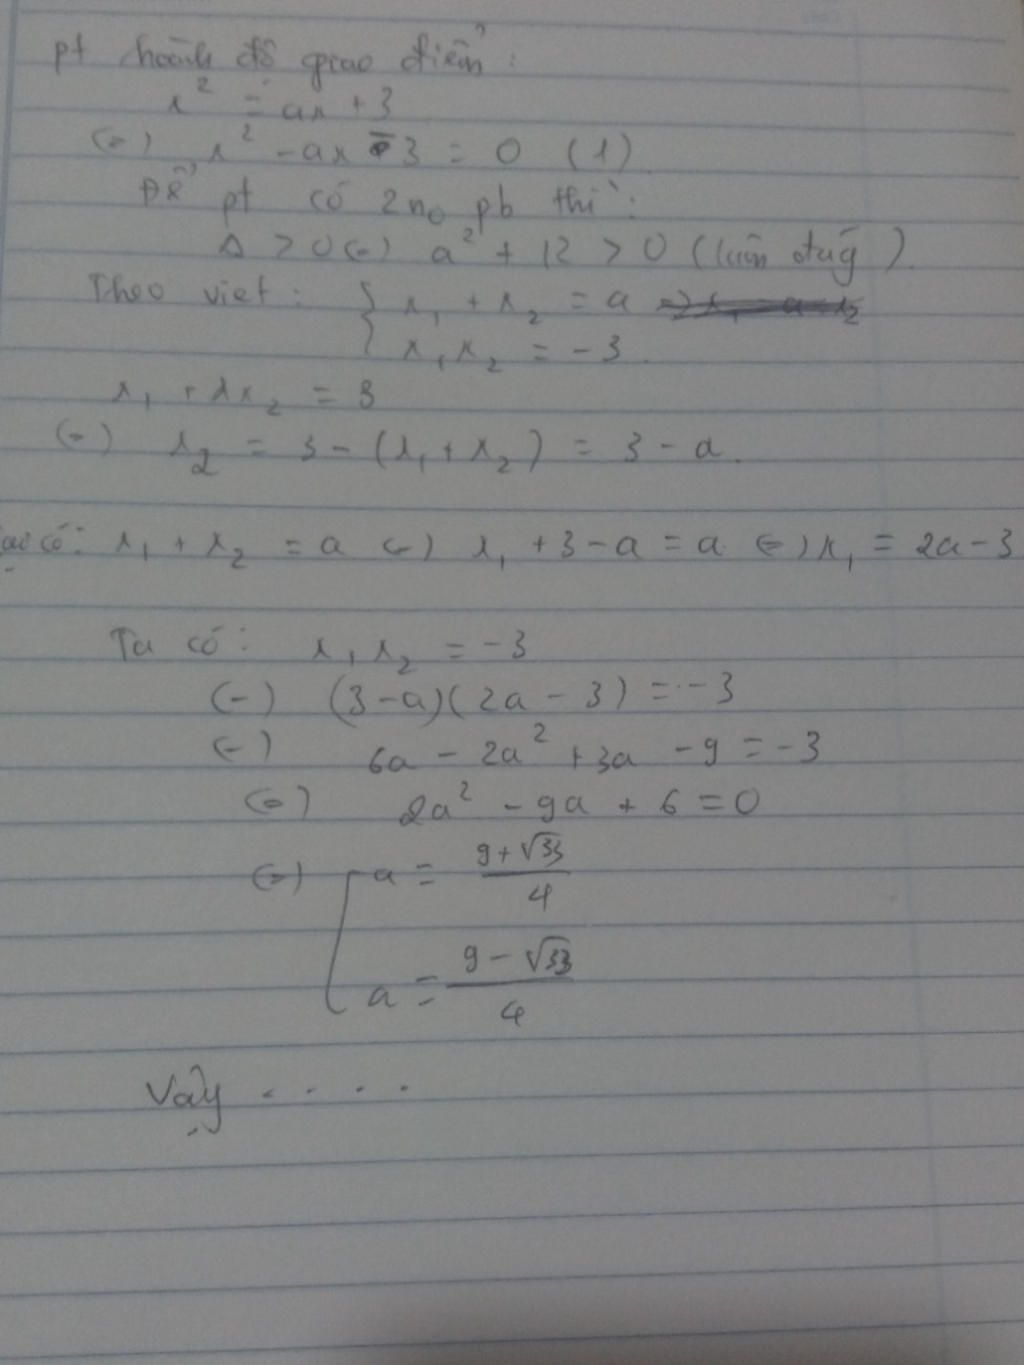 pt hoành độ giao điểm :
x² = ax + 3
(=) x² - ax - 3 = 0 (1)
Để pt có 2 n₀ pb thì :
Δ > 0 (=) a² + 12 > 0 (luôn đúg ).
Theo viet : { x₁ + x₂ = a
x₁x₂ = -3.
x₁ + 2x₂ = 3
(=) x₂ = 3 - (x₁ + x₂) = 3 - a.
có: x₁ + x₂ = a (=) x₁ + 3 - a = a (=) x₁ = 2a - 3
Ta có: x₁x₂ = -3
(=) (3-a)(2a - 3) = -3
(=) 6a - 2a² + 3a - 9 = -3
(=) 2a² - 9a + 6 = 0
(=) [ a = (9+√33)/4
a = (9-√33)/4
Vậy . . . .